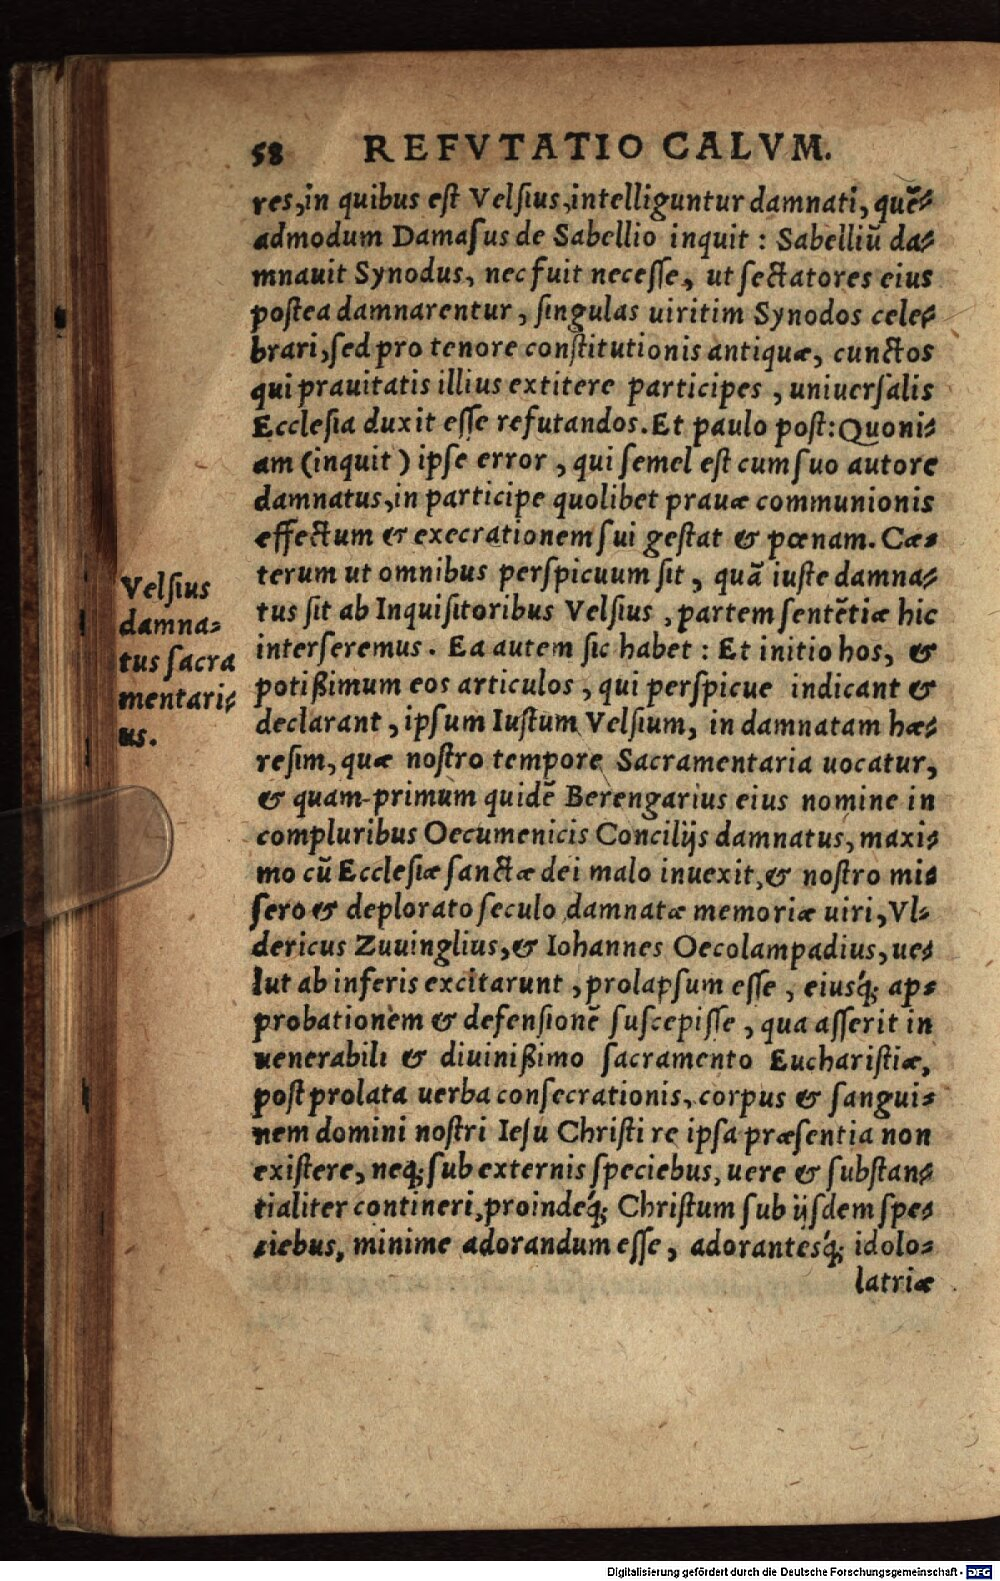 58 REFVTATIO CALVM.
res, in quibus eſt Velſius, intelliguntur damnati, quē⸗
admodum Damaſus de Sabellio inquit : Sabelliū da⸗
mnauit Synodus, nec fuit neceſſe, ut ſectatores eius
poſtea damnarentur, ſingulas uiritim Synodos cele⸗
brari, ſed pro tenore conſtitutionis antiquæ, cunctos
qui prauitatis illius extitere participes, uniuerſalis
Eccleſia duxit eſſe refutandos. Et paulo poſt: Quoni⸗
am (inquit) ipſe error, qui ſemel eſt cum ſuo autore
damnatus, in participe quolibet prauæ communionis
effectum & execrationem ſui geſtat & pœnam. Cæ⸗
terum ut omnibus perſpicuum ſit, quā iuſte damna⸗
tus ſit ab Inquiſitoribus Velſius, partem ſentētiæ hic
interſeremus. Ea autem ſic habet : Et initio hos, &
potißimum eos articulos, qui perſpicue indicant &
declarant, ipſum Iuſtum Velſium, in damnatam hæ⸗
reſim, quæ noſtro tempore Sacramentaria uocatur,
& quam primum quidē Berengarius eius nomine in
compluribus Oecumenicis Concilijs damnatus, maxi⸗
mo cū Eccleſiæ ſanctæ dei malo inuexit, & noſtro mi⸗
ſero & deplorato ſeculo damnatæ memoriæ uiri, Vl⸗
dericus Zuuinglius, & Iohannes Oecolampadius, ue⸗
lut ab inferis excitarunt, prolapſum eſſe, eiusq́; ap⸗
probationem & defenſionē ſuſcepiſſe, qua aſſerit in
uenerabili & diuinißimo ſacramento Euchariſtiæ,
poſt prolata uerba conſecrationis, corpus & ſangui⸗
nem domini noſtri Ieſu Chriſti re ipſa præſentia non
exiſtere, neq; ſub externis ſpeciebus, uere & ſubſtan⸗
tialiter contineri, proindeq́; Chriſtum ſub ijſdem ſpe⸗
ciebus, minime adorandum eſſe, adorantesq́; idolo⸗
latriæ
Velſius
damna⸗
tus ſacra
mentari⸗
us.
Digitalisierung gefördert durch die Deutsche Forschungsgemeinschaft - DFG